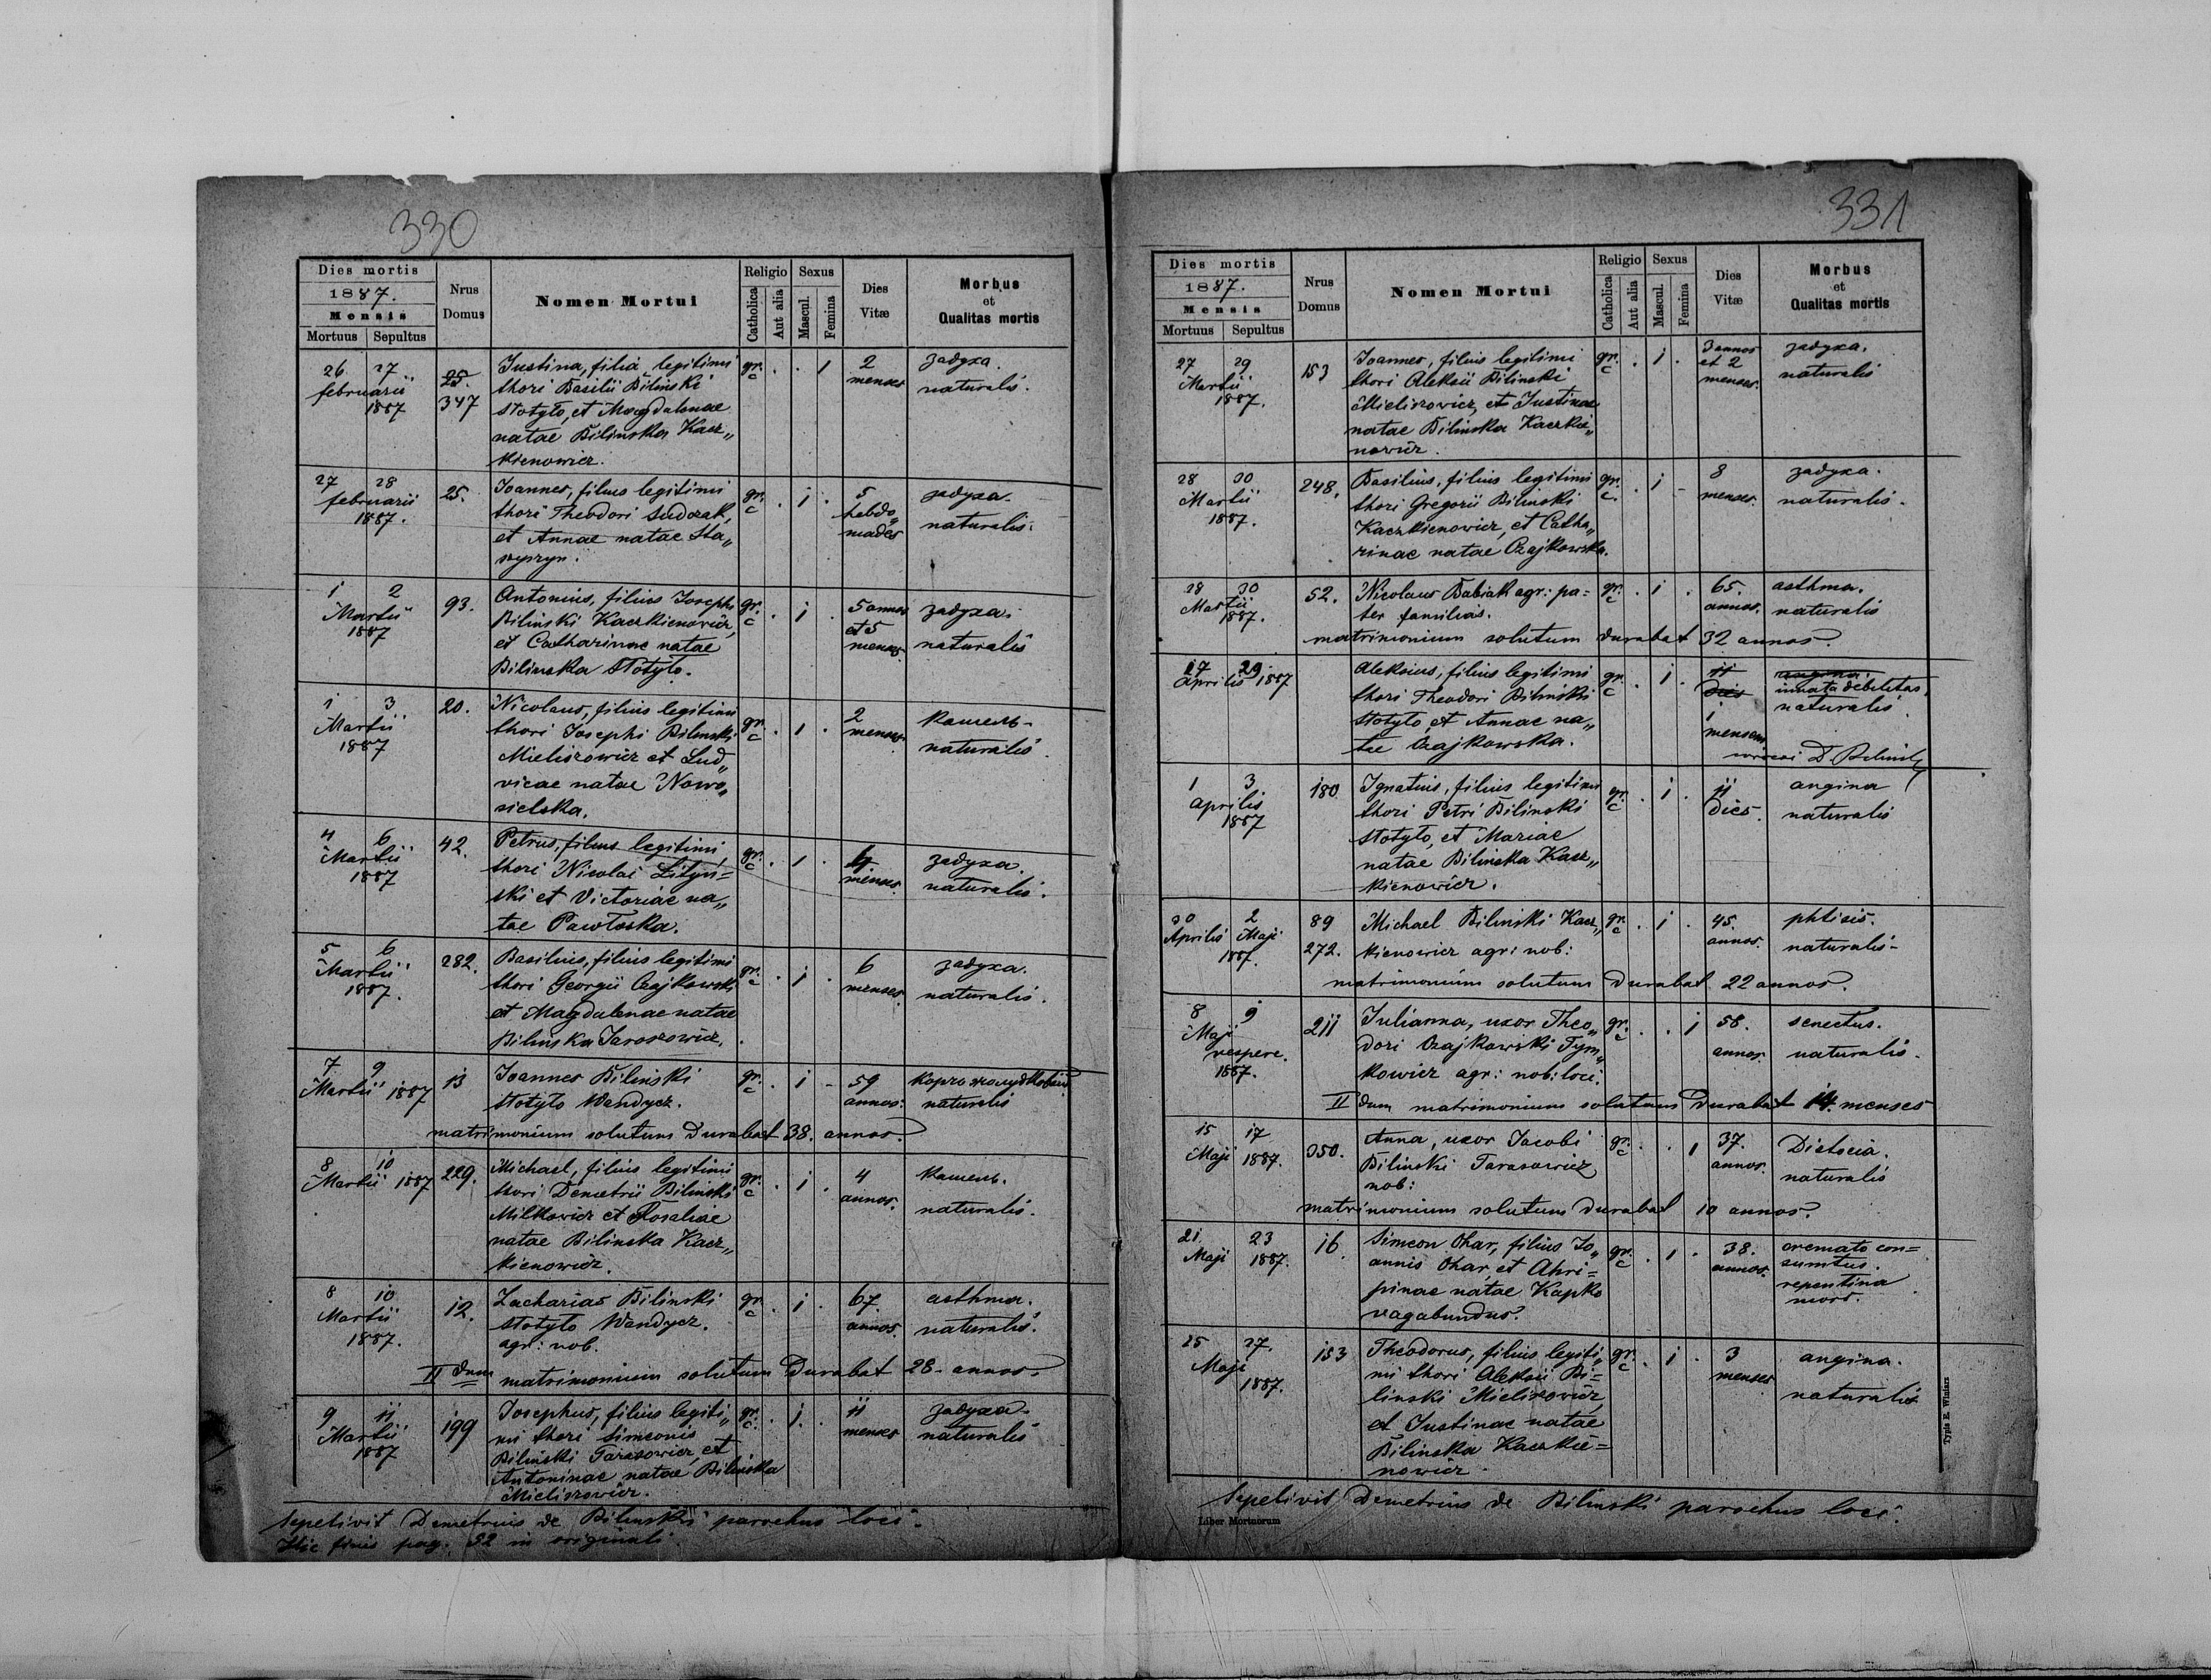 330
Dies mortis
1887.
Mensis
Mortuus Sepultus
Nrus
Domus
Nomen Mortui
Religio
Catholica
Aut alia
Sexus
Mascul.
Femina
Dies
Vitæ
Morbus
et
Qualitas mortis
26 27
februarii
1887
25.
347
Justina, filia legitimi
thori Basilii Bilinski
Stotyło, et Magdalenae
natae Bilinska Kacz„
kienowicz.
gr.
c
. . 1 .
2
menses
задуха.
naturalis.
27 28
februarii
1887.
25.
Joannes, filius legitimi
thori Theodori Sudczak,
et Annae natae Sta„
gr.
c
. 1 .
5
hebdo„
mades
задуха.
naturalis.
1 2
Martii
1887
93.
Antonius, filius Josephi
Bilinski Kaczkienowicz,
et Catharinae natae
Bilinska Stotyło.
gr.
c
. i .
5 annos
et 5
menses.
задуха.
naturalis
1 3
Martii
1887
20.
Nicolaus, filius legitimi
thori Josephi Bilinski
Mieliszowicz et Lud„
vicae natae Nowo„
sielska.
gr.
c
. 1 .
2
menses.
кашель.
naturalis.
4 6
Martii
1887
42.
Petrus, filius legitimi
thori Nicolai Lityn=
ski et Victoriae na„
tae Pawłoska.
gr.
c
. 1 .
4
menses.
задуха.
naturalis.
5 6
Martii
1887.
282.
Basilius, filius legitimi
thori Georgii Czajkowski
et Magdalenae natae
Bilinska Jaroszowicz.
gr.
c
. i .
6
menses.
задуха.
naturalis.
7 9
Martii 1887
13
Joannes Bilinski
Stotyło Wandycz.
gr.
c
. i -
59
annos.
naturalis
matrimonium solutum durabat 38. annos.
8 10
Martii 1887
229.
Michael, filius legitimi
thori Demetrii Bilinski
Milkowicz et Rosaliae
natae Bilinska Kacz„
kienowicz.
gr.
c
. i .
4
annos.
кашель.
naturalis.
8 10
Martii
1887.
12.
Zacharias Bilinski
Stotyło Wandycz.
agr: nob.
gr.
c
. i .
67.
annos.
asthma.
naturalis.
II dum matrimonium solutum durabat 28 annos.
9 11
Martii
1887
199
Josephus, filius legiti„
mi thori Simeonis
Bilinski Tarasowicz, et
Antoninae natae Bilinska
Mieliszowicz.
gr.
c.
. i .
11
menses
задуха.
naturalis
Sepelivit Demetrius de Bilinski parochus loci.
Hic finis pag. 52 in originali.
331
Dies mortis
1887.
Mensis
Mortuus Sepultus
Nrus
Domus
Nomen Mortui
Religio
Catholica
Aut alia
Sexus
Mascul.
Femina
Dies
Vitæ
Morbus
et
Qualitas mortis
27 29
Martii
1887.
153
Joannes, filius legitimi
thori Aleksii Bilinski
Mieliszowicz, et Justinae
natae Bilinska Kaczkie„
nowicz.
gr.
c
. i .
3 annos
et 2
menses.
задуха.
naturalis
28 30
Martii
1887.
248.
Basilius, filius legitimi
thori Gregorii Bilinski
Kaczkienowicz, et Catha„
rinae natae Czajkowska.
gr.
c.
. i -
8
menses.
задуха.
naturalis.
28 30
Martii
1887.
52.
Nicolaus Babiak agr: pa=
ter familias.
gr.
c
. i .
65.
annos.
asthma.
naturalis
matrimonium solutum durabat 32 annos.
17 29
Aprilis 1887
Aleksius, filius legitimi
thori Theodori Bilinski
Stotyło, et Annae na„
tae Czajkowska.
gr.
c
. i .
11
dies
1
mensem
angina
innata debilitas.
naturalis.
D Bilinski
1 3
Aprilis
1887
180
Ignatius, filius legitimi
thori Petri Bilinski
Stotyło, et Mariae
natae Bilinska Kacz„
kienowicz.
gr.
c
. i .
11
dies.
angina
naturalis
30 2
Aprilis Maji
1887.
89
272.
Michael Bilinski Kacz„
kienowicz agr: nob:
gr.
c
. i .
45.
annos.
phtisis.
naturalis-
matrimonium solutum durabat 22 annos.
8 9
Maji
vespere.
1887.
211
Julianna, uxor Theo„
dori Czajkowski Tym„
kowicz agr: nob: loci.
gr.
c
. . i
58.
annos.
senectus.
naturalis.
II dum matrimonium solutum durabat 14. menses
15 17
Maji 1887.
350.
Anna, uxor Jacobi
Bilinski Tarasowicz
nob:
gr.
c
. . 1
37.
annos.
Distocia.
naturalis
matrimonium solutum durabat 10 annos.
21. 23
Maji 1887.
16.
Simeon Ohar, filius Jo„
annis Ohar, et Ahri=
pinae natae Kapko
vagabundus.
gr.
c
. 1 .
38.
annos.
cremato con=
sumtus.
repentina
mors.
25 27.
Maji
1887.
153
Theodorus, filius legiti„
mi thori Aleksii Bi=
linski Mieliszowicz,
et Justinae natae
Bilinska Kaczkie=
nowicz.
gr.
c
. i .
3
menses
angina.
naturalis
Sepelivit Demetrius de Bilinski parochus loci.
Liber Mortuorum
Typis E. Winiarz